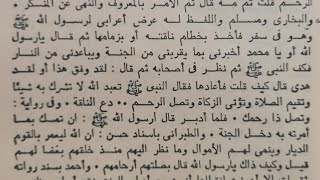 الرحم قلت ثم مه قال ثم الأمر بالمعروف والنهى عن المنكر .
والبخارى ومسلم واللفظ له عرض أعرابى لرسول الله ﷺ
وهو فى سفر فأخذ بخطام ناقته أو بزمامها ثم قال يارسول
الله أو يا محمد أخبرنى بما يقربنى من الجنة ويباعدنى من النار
فكف النبى ﷺ ثم نظر فى أصحابه ثم قال : لقد وفق هذا أو لقد
هدى قال كيف قلت فأعادها فقال النبى ﷺ تعبد الله لا تشرك به شيئا
وتقيم الصلاة وتؤتى الزكاة وتصل الرحم .. دع الناقة . وفى رواية :
وتصل ذا رحمك . فلما أدبر قال رسول الله ﷺ : إن تمسك بما
أمرته به دخل الجنة . والطبرانى بإسناد حسن : إن الله ليعمر بالقوم
الديار وينمى لهم الأموال وما نظر اليهم منذ خلقهم بغضا لهم
قيل وكيف ذاك يارسول الله قال بصلتهم أرحامهم . وأحمد بسند رواته